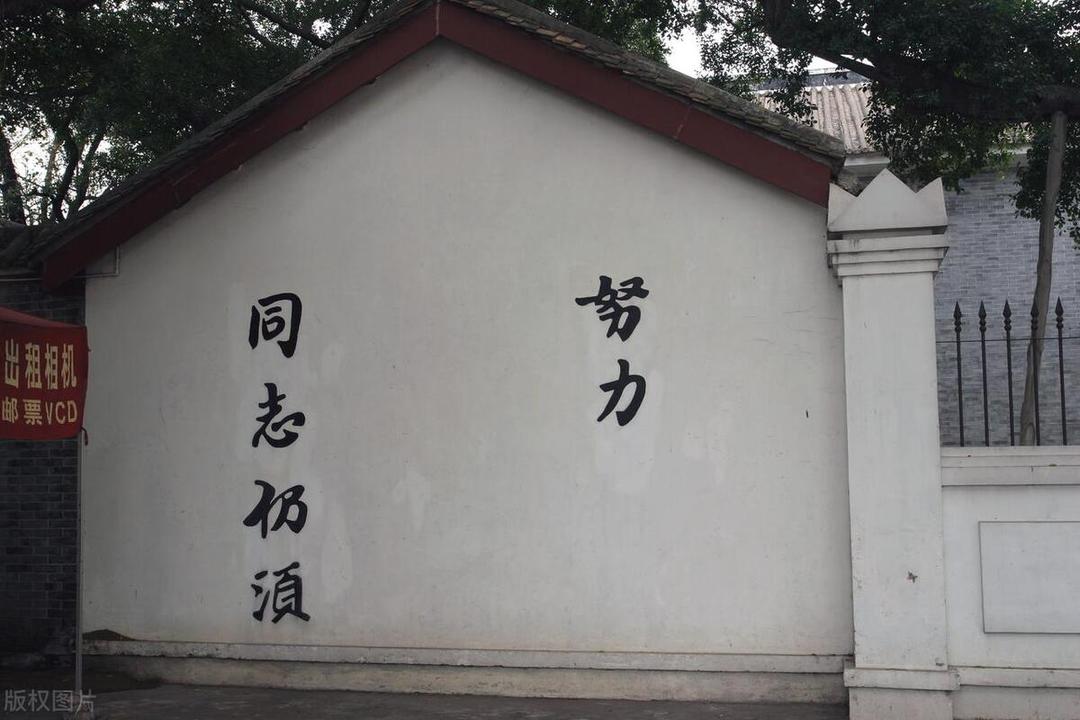 同志仍須
努力
出租相机
邮票VCD
版权图片